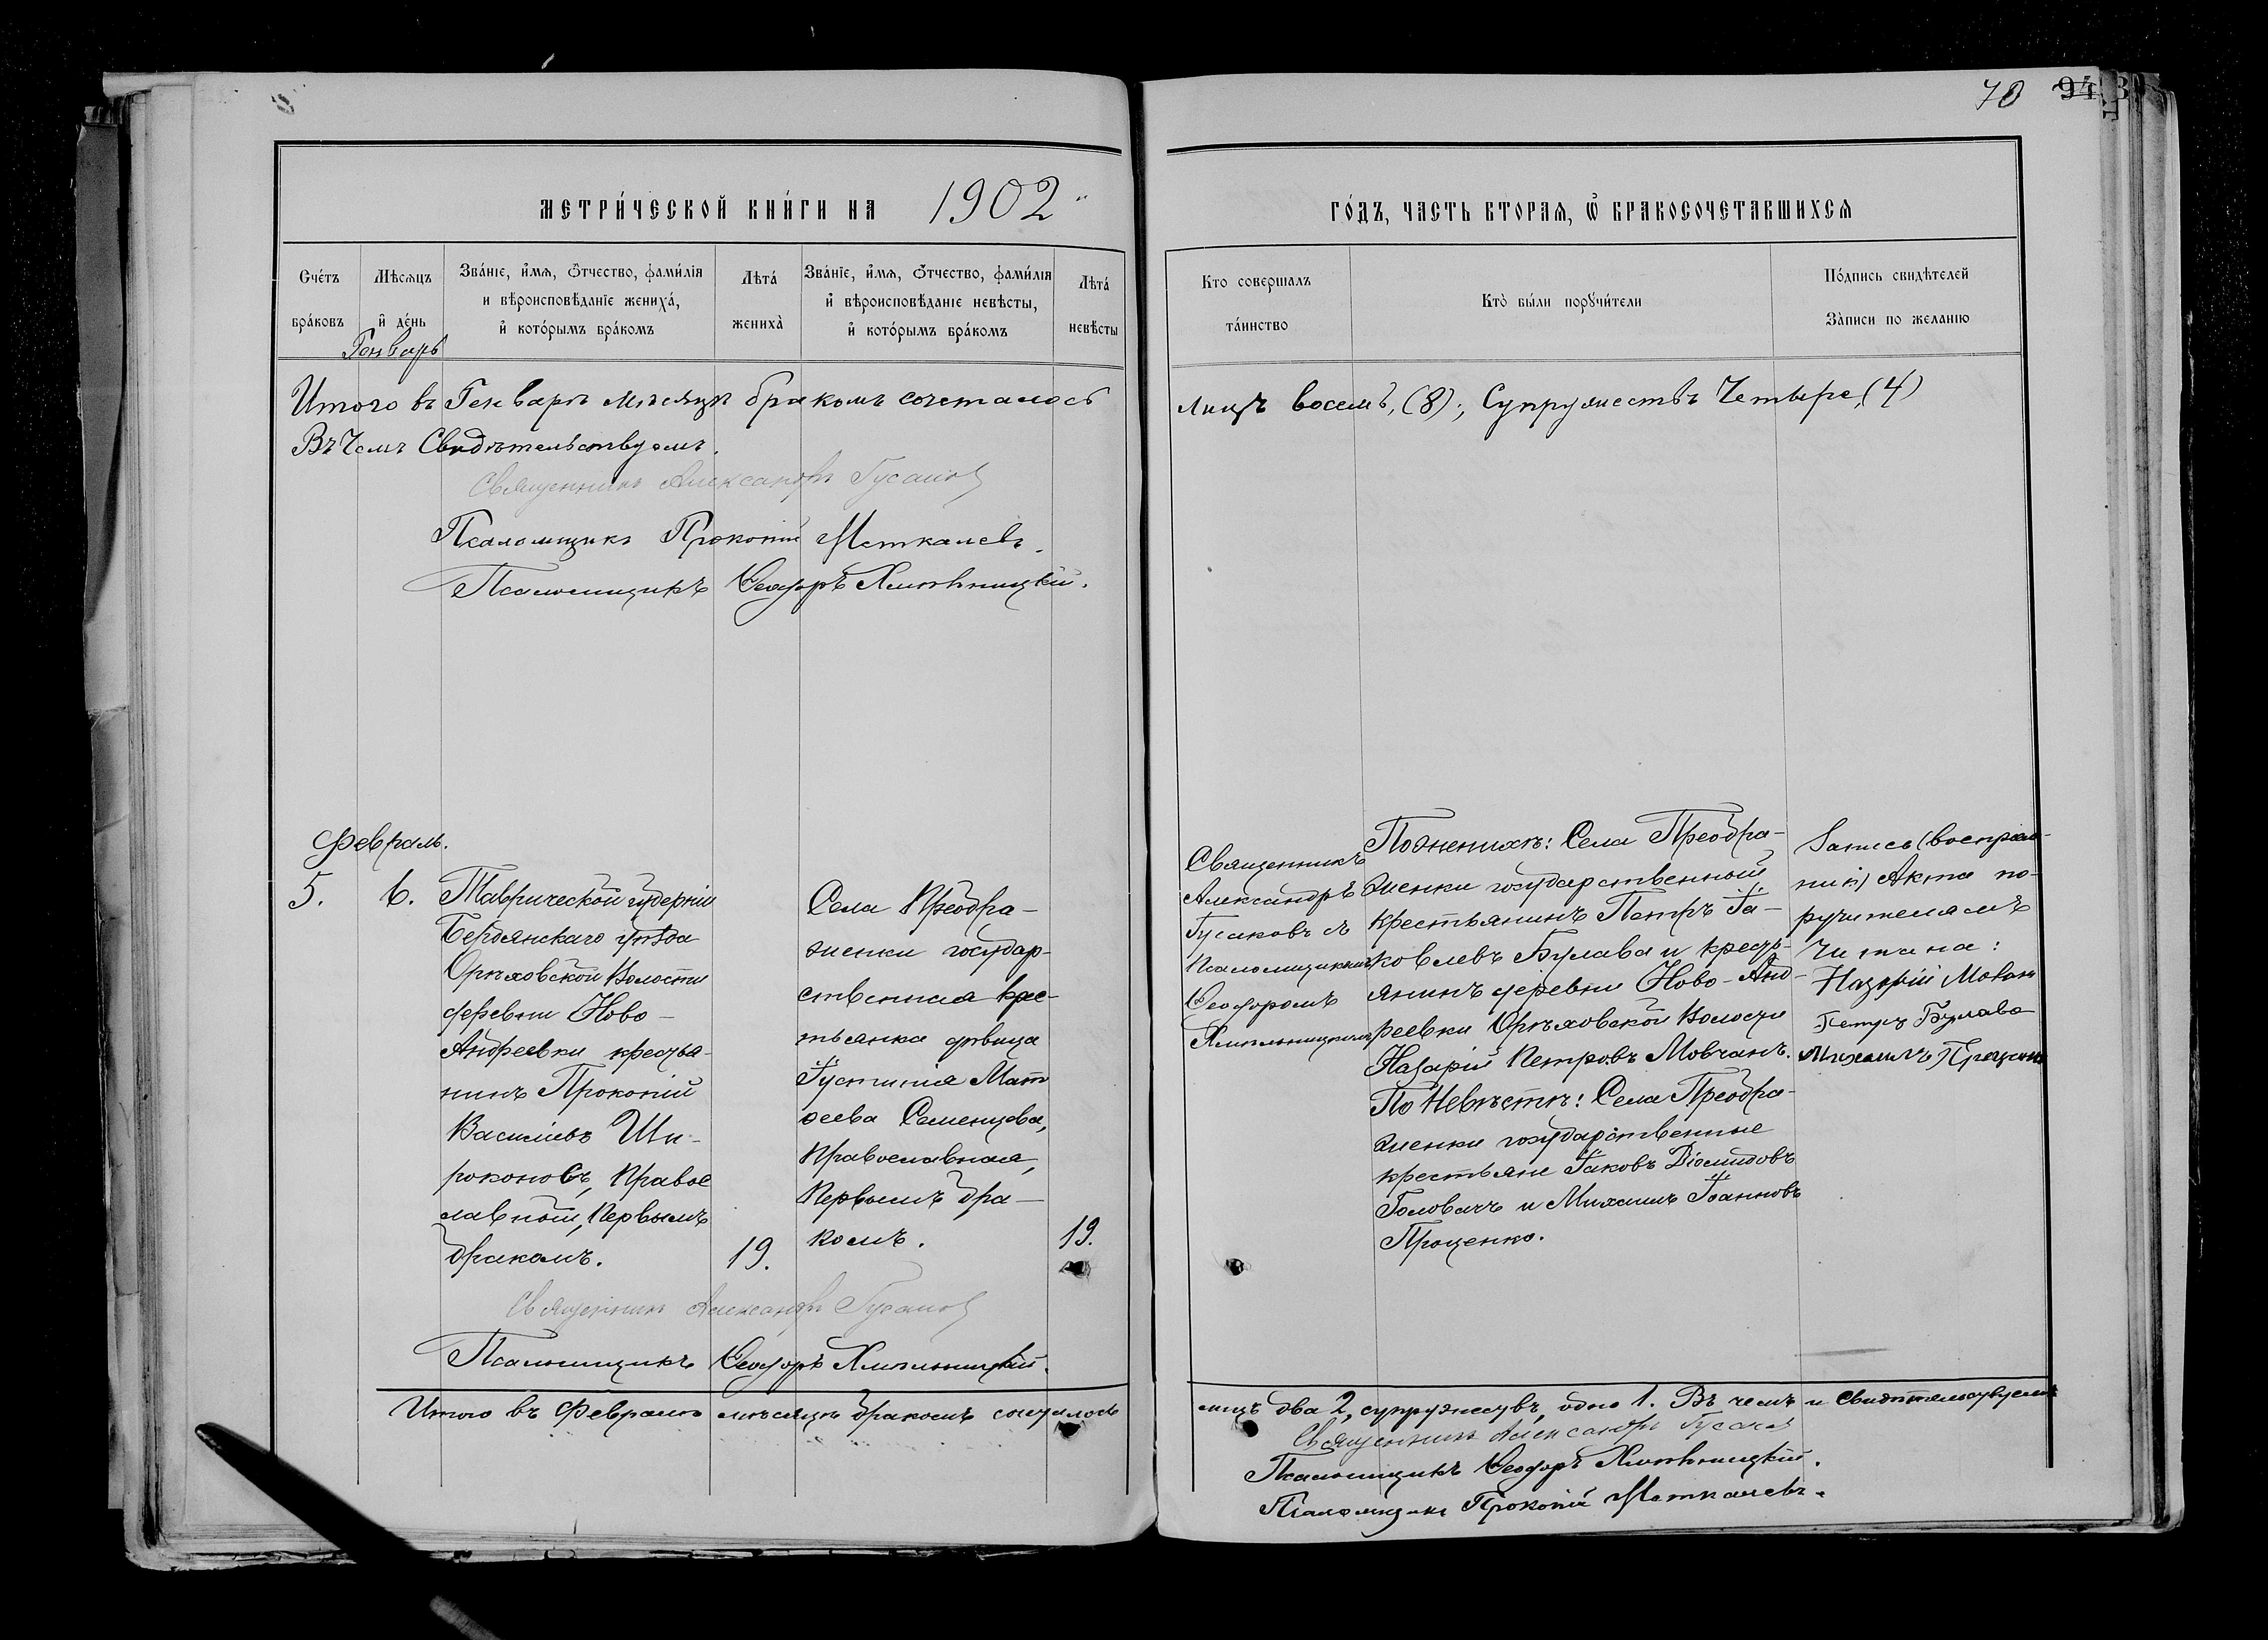 70 94
МЕТРИ́ЧЕСКОЙ КНИ́ГИ НА 1902
ГО́ДЪ, ЧАСТЬ ВТОРАѦ, Ѿ БРАКОСОЧЕТАВШИХСѦ
Сче́тъ бра́ковъ
Мѣсѧцъ и де́нь
Зва́нїе, и҆́мѧ, ѻ҆́тчество, фами́лїѧ
и вѣроисповѣ́данїе жениха́,
и҆ кото́рымъ бра́комъ
Лѣта́
жениха̀
Зва́нїе, и҆́мѧ, ѻ҆́тчество, фами́лїѧ
и҆ вѣроисповѣ́данїе невѣ́сты,
и҆ кото́рымъ бра́комъ
Лѣта́
невѣ́сты
Кто совершалъ
та́инство
Кто̀ бы́ли порꙋчи́тели
По́дпись свидѣ́телей
За̀писи по жела́нїю
Генварь
Итого въ Генварѣ мѣсяцѣ бракомъ сочеталось
лицъ восемь, (8); Супружествъ Четыре, (4)
Въ Чемъ Свидѣтельствуемъ.
Священникъ Александръ Гусаков
Псаломщикъ Прокопій Меткалевъ.
Псаломщикъ Ѳеодоръ Хмѣльницкій.
Февраль.
5.
6.
Таврической губерніи
Бердянскаго уѣзда
Орѣховской Волости
деревни Ново-
Андреевки крестья-
нинъ Прокопій
Василіевъ Ши-
роконовъ, Правос
лавный, Первымъ
бракомъ.
19.
Села Преобра-
женки государ-
ственная крес-
тьянка дѣвица
Іустинія Мат
ѳеева Семенцова,
Православная,
Первымъ бра-
комъ.
19.
Священникъ
Александръ
Гусаковъ съ
Псаломщикомъ
Ѳеодоромъ
Хмѣльницкимъ
По женихѣ: Села Преобра-
женки государственный
крестьянинъ Петръ Іа-
ковлевъ Булава и кресть-
янинъ деревни Ново-Анд-
реевки Орѣховской Волости
Назарій Петровъ Мовчанъ.
По Невѣстѣ: Села Преобра-
женки государственные
крестьяне Іаковъ Діомидовъ
Головачъ и Михаилъ Іоанновъ
Проценко.
Запись
Акта по-
ручителямъ
Читана:
Назарій Мовчан
Петръ Булава
Михаилъ Проценко
Священникъ Александръ Гусаков
Псаломщикъ Ѳеодоръ Хмѣльницкій.
Итого въ Февралѣ мѣсяцѣ бракомъ сочеталось
лицъ два 2, супружествъ, одно 1. Въ чемъ и свидѣтельствуемъ
Священникъ Александръ Гусаков
Псаломщикъ Ѳеодоръ Хмѣльницкій.
Псаломщикъ Прокопій Меткалевъ.